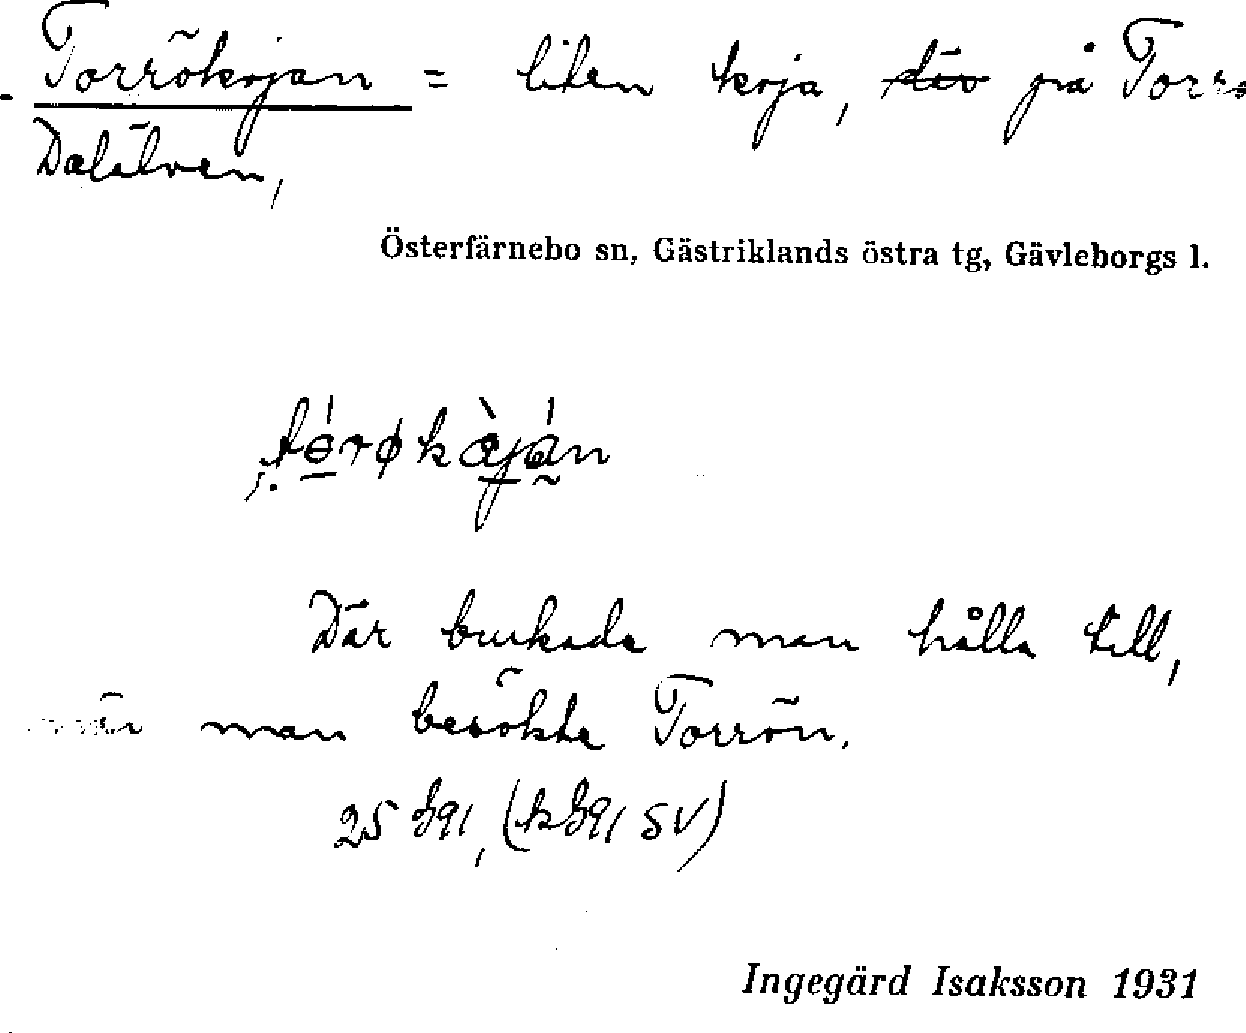 Torrökojan = liten koja, på Torr
Dalälven,
Österfärnebo sn, Gästriklands östra tg, Gävleborgs l.
Där brukade man hålla till,
när man besökte Torrön.
Ingegärd Isaksson 1931